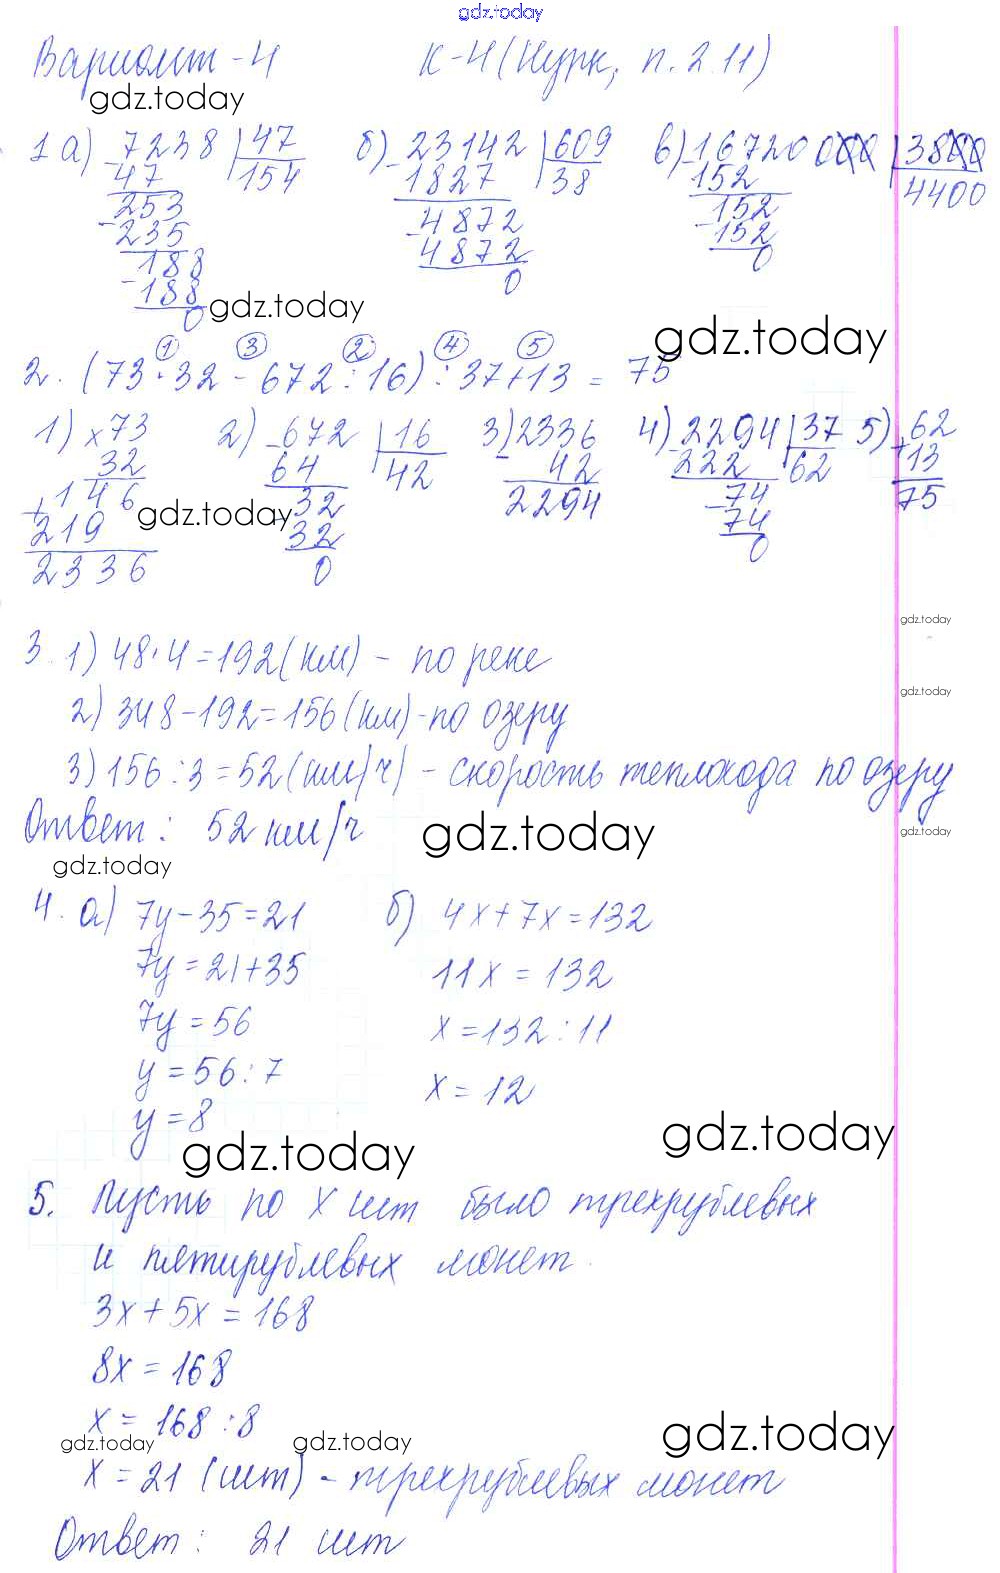 gdz.today
Вариант-4 К-4 (Нурк, п. 2.11)
gdz.today
1 а) 7238 | 47 б) 23142 | 609 в) 16720000 | 3800
- 47 154 - 1827 38 - 152 4400
253 4872 152
- 235 - 4872 - 152
188 0 0
- 188
0
gdz.today
gdz.today
① ③ ② ④ ⑤
2. (73·32 - 672:16) : 37+13 = 75
1) x73 2) -672 | 16 3) 2336 4) 2294 | 37 5) 62
32 64 42 - 42 - 222 62 + 13
+146 32 2294 - 74 75
219 - 32 74
2336 0 0
gdz.today
gdz.today
3. 1) 48·4=192(км) - по реке
gdz.today
2) 348-192=156(км)-по озеру
3) 156:3=52(км/ч) - скорость теплохода по озеру
Ответ: 52 км/ч
gdz.today
gdz.today
gdz.today
4. а) 7y-35=21 б) 4x+7x=132
7y=21+35 11x=132
7y=56 x=132:11
y=56:7 x=12
y=8
gdz.today
gdz.today
5. Пусть по x шт было трехрублевых
и пятирублевых монет.
3x+5x=168
8x=168
x=168:8
gdz.today
gdz.today
gdz.today
x=21 (шт) - трехрублевых монет
Ответ: 21 шт